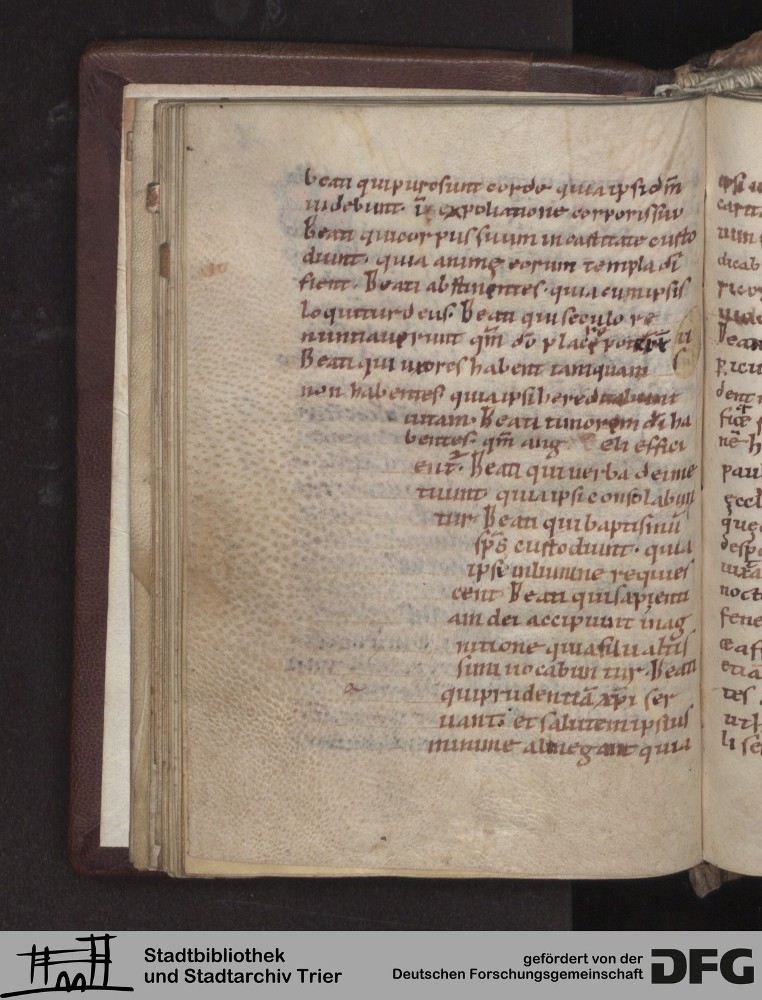 beati qui puro sunt corde quia ipsi dm̄
uidebunt. expoliatione corporis sui
Beati qui corpus suum in castitate custo
diunt. quia animę eorum templa dī
fient. Beati abstinentes. quia cum ipsis
loquitur deus. Beati qui seculo re
nuntiauerunt qm̄ dō
Beati qui uxores habent tamquam
non habentes. quia ipsi hereditabunt
Beati timorem dī ha
bentes. qm̄ ang eli effici
ent. Beati qui uerba dei me
tiunt. quia ipsi consolabun
tur. Beati qui baptismū
sp̄s custodiunt. quia
ipsi in lumine requies
cent. Beati qui sapienti
am dei accipiunt in ag
nitione quia filii altis
simi uocabuntur. Beati
qui prudentiā xp̄i ser
uant. et salutem ipsius
minime abnegant quia
Stadtbibliothek
und Stadtarchiv Trier
gefördert von der
Deutschen Forschungsgemeinschaft
DFG